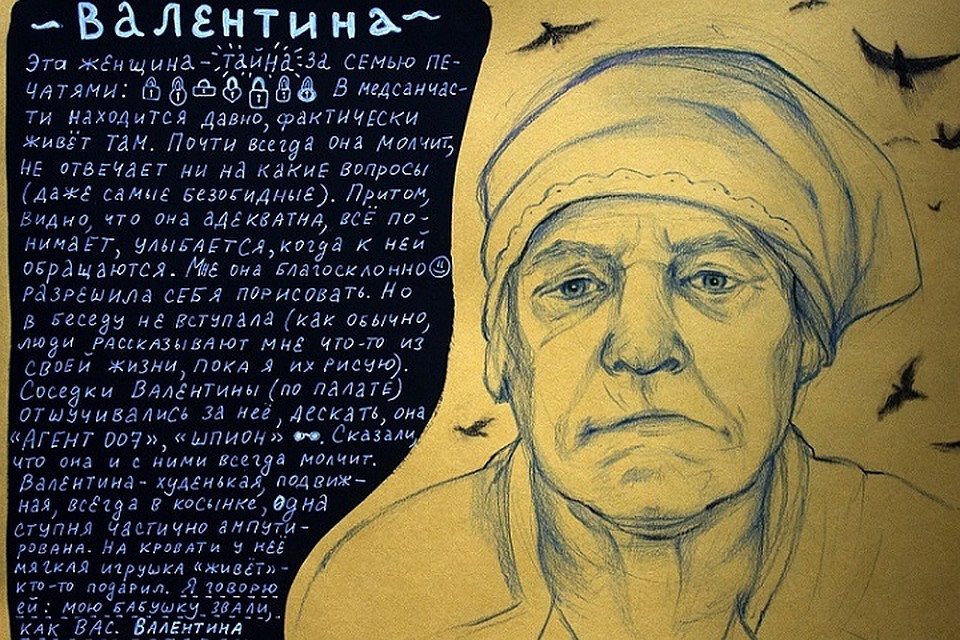 ~ ВАЛЕНТИНА ~
Эта женщина - тайна за семью пе-
чатями: В медсанчас-
ти находится давно, фактически
живёт там. Почти всегда она молчит,
не отвечает ни на какие вопросы
(даже самые безобидные). Притом,
видно, что она адекватна, всё по-
нимает, улыбается, когда к ней
обращаются. Мне она благосклонно
разрешила себя порисовать. Но
в беседу не вступала (как обычно,
люди рассказывают мне что-то из
своей жизни, пока я их рисую).
Соседки Валентины (по палате)
отшучивались за неё, дескать, она
«Агент 007», «шпион» . Сказали,
что она и с ними всегда молчит.
Валентина - худенькая, подвиж-
ная, всегда в косынке, одна
ступня частично ампути-
рована. На кровати у неё
мягкая игрушка "живёт" -
кто-то подарил. Я говорю
ей: мою бабушку звали,
как Вас. Валентина